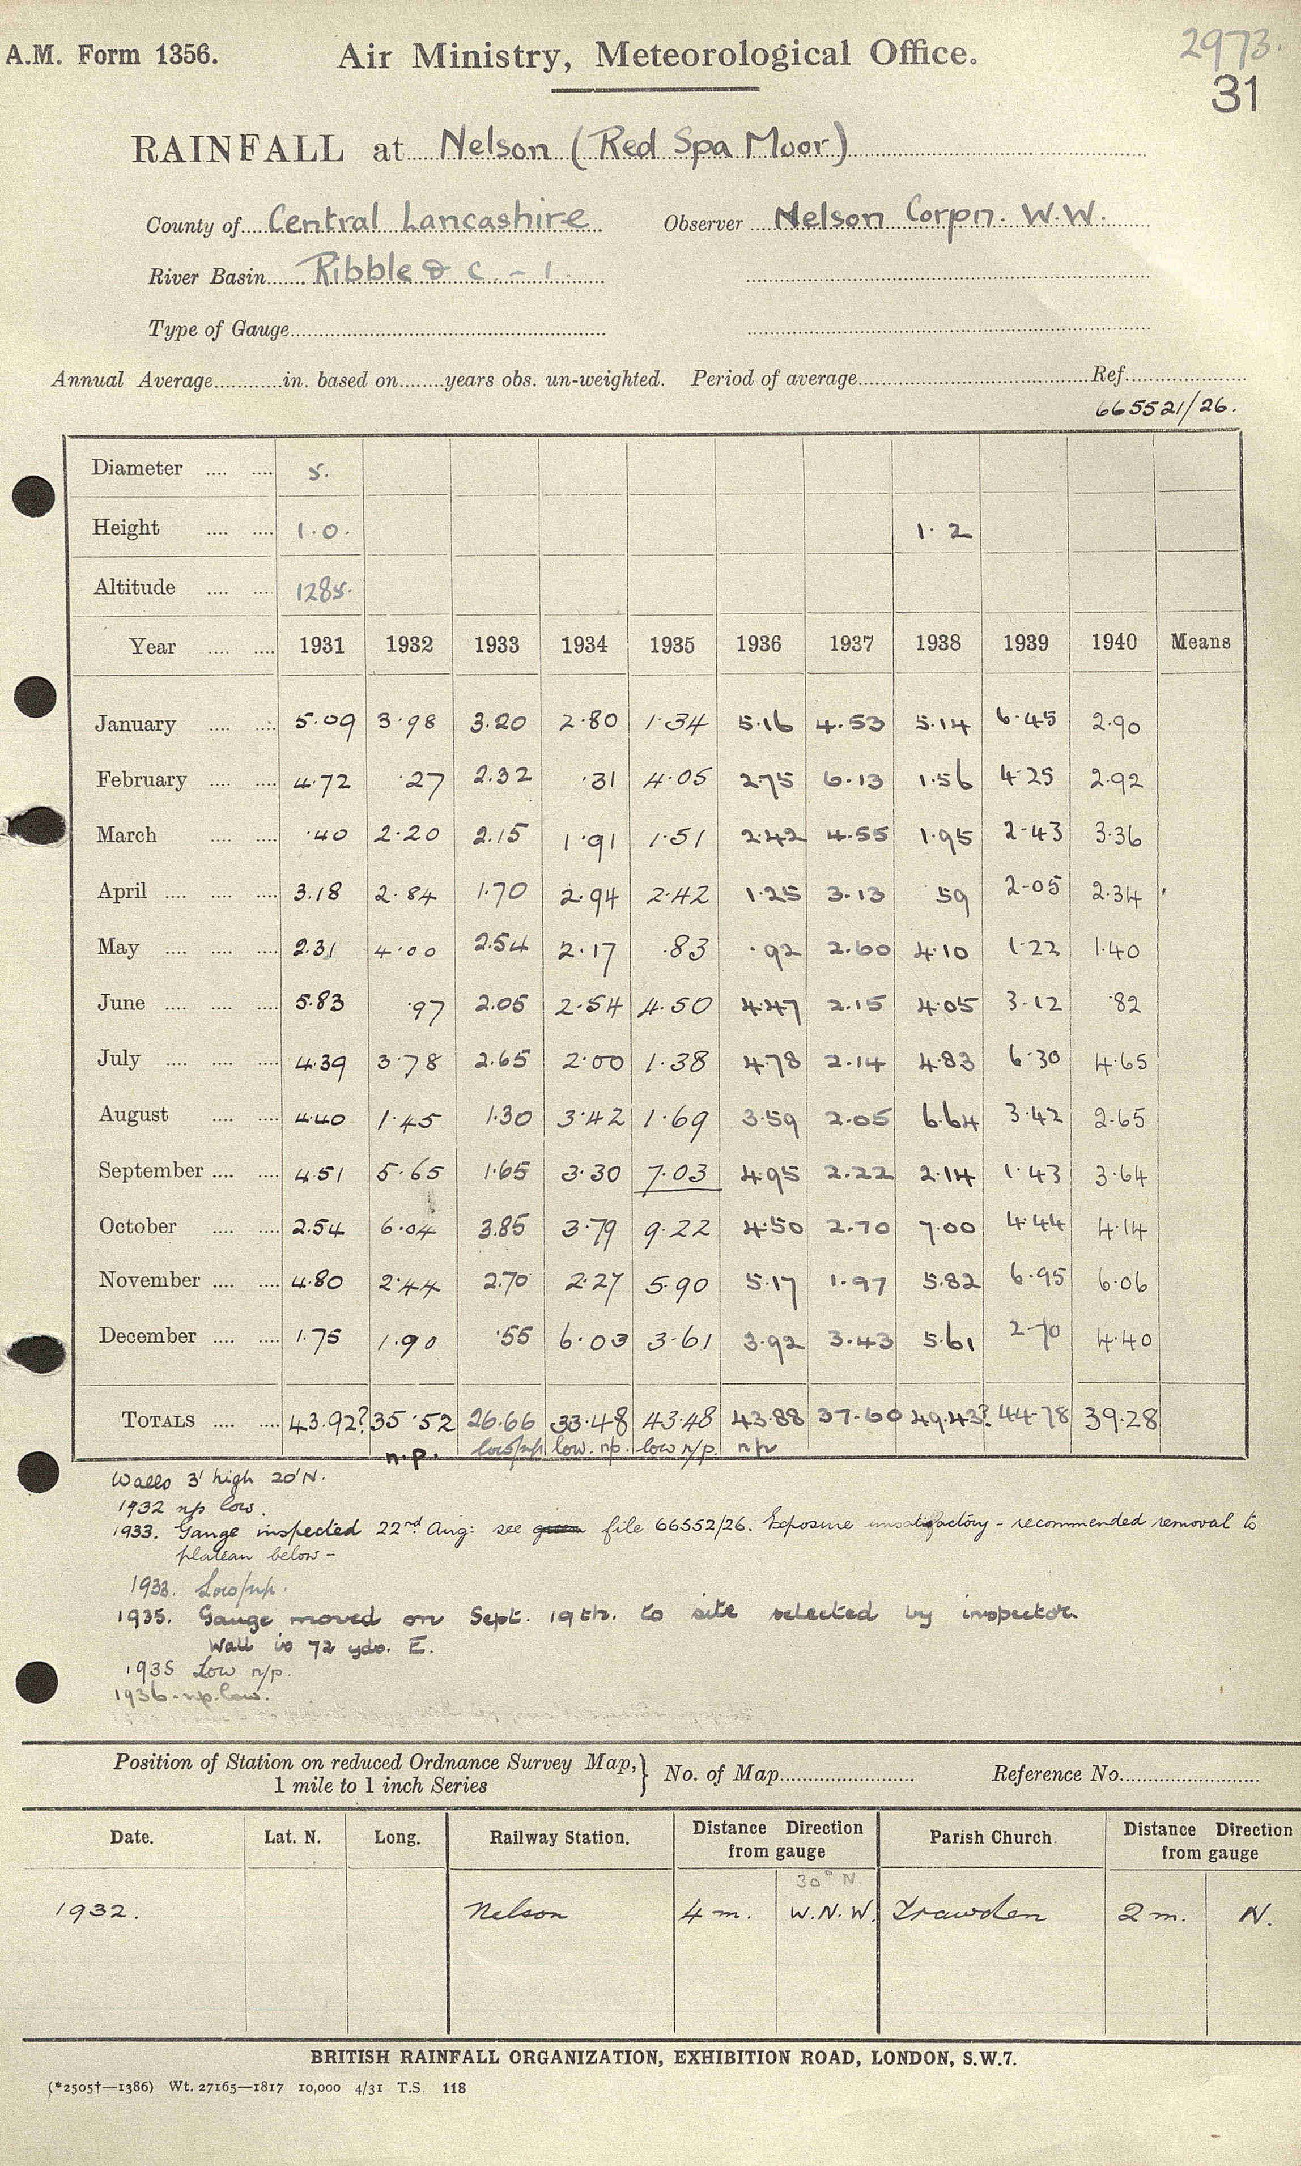 2973.
A.M. Form 1356. Air Ministry, Meteorological Office.
31
RAINFALL at Nelson (Red Spa Moor)
County of Central Lancashire Observer Nelson Corpn. W.W.
River Basin Ribble & c. - 1.
Type of Gauge
Annual Average in. based on years obs. un-weighted. Period of average Ref.
665521/26.
Diameter 5.
Height 1.0. 1.2
Altitude 1285.
Year 1931 1932 1933 1934 1935 1936 1937 1938 1939 1940 Means
January 5.09 3.98 3.20 2.80 1.34 5.16 4.53 5.14 6.45 2.90
February 4.72 .27 2.32 .31 4.05 2.75 6.13 1.56 4.25 2.92
March .40 2.20 2.15 1.91 1.51 2.42 4.55 1.95 2.43 3.36
April 3.18 2.84 1.70 2.94 2.42 1.25 3.13 59 2.05 2.34
May 2.31 4.00 2.54 2.17 .83 .92 2.60 4.10 1.22 1.40
June 5.83 .97 2.05 2.54 4.50 4.47 2.15 4.05 3.12 .82
July 4.39 3.78 2.65 2.00 1.38 4.78 2.14 4.83 6.30 4.65
August 4.40 1.45 1.30 3.42 1.69 3.59 2.05 6.64 3.42 2.65
September 4.51 5.65 1.65 3.30 7.03 4.95 2.22 2.14 1.43 3.64
October 2.54 6.04 3.85 3.79 9.22 4.50 2.70 7.00 4.44 4.14
November 4.80 2.44 2.70 2.27 5.90 5.17 1.97 5.82 6.95 6.06
December 1.75 1.90 .55 6.03 3.61 3.92 3.43 5.61 2.70 4.40
TOTALS 43.92? 35.52 26.66 33.48 43.48 43.88 37.60 49.43? 44.78 39.28
n.p. low/np low. np. low n/p. np
Walls 3' high 20' N.
1932 np low.
1933. Gauge inspected 22nd Aug: see file 66552/26. Exposure unsatisfactory - recommended removal to
plateau below -
1933. Low/np.
1935. Gauge moved on Sept. 19th. to site selected by inspector.
Wall is 72 yds. E.
1935 Low n/p.
1936 - np. low.
Position of Station on reduced Ordnance Survey Map, 1 mile to 1 inch Series } No. of Map Reference No.
Date. Lat. N. Long. Railway Station. Distance Direction from gauge Parish Church. Distance Direction from gauge
30° N
1932. Nelson 4 m. W.N.W. Trawden 2 m. N.
BRITISH RAINFALL ORGANIZATION, EXHIBITION ROAD, LONDON, S.W.7.
(*2505†—1386) Wt. 27165—1817 10,000 4/31 T.S. 118